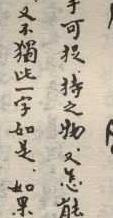 手可捉持之物又怎能
又不獨此一字如是如果